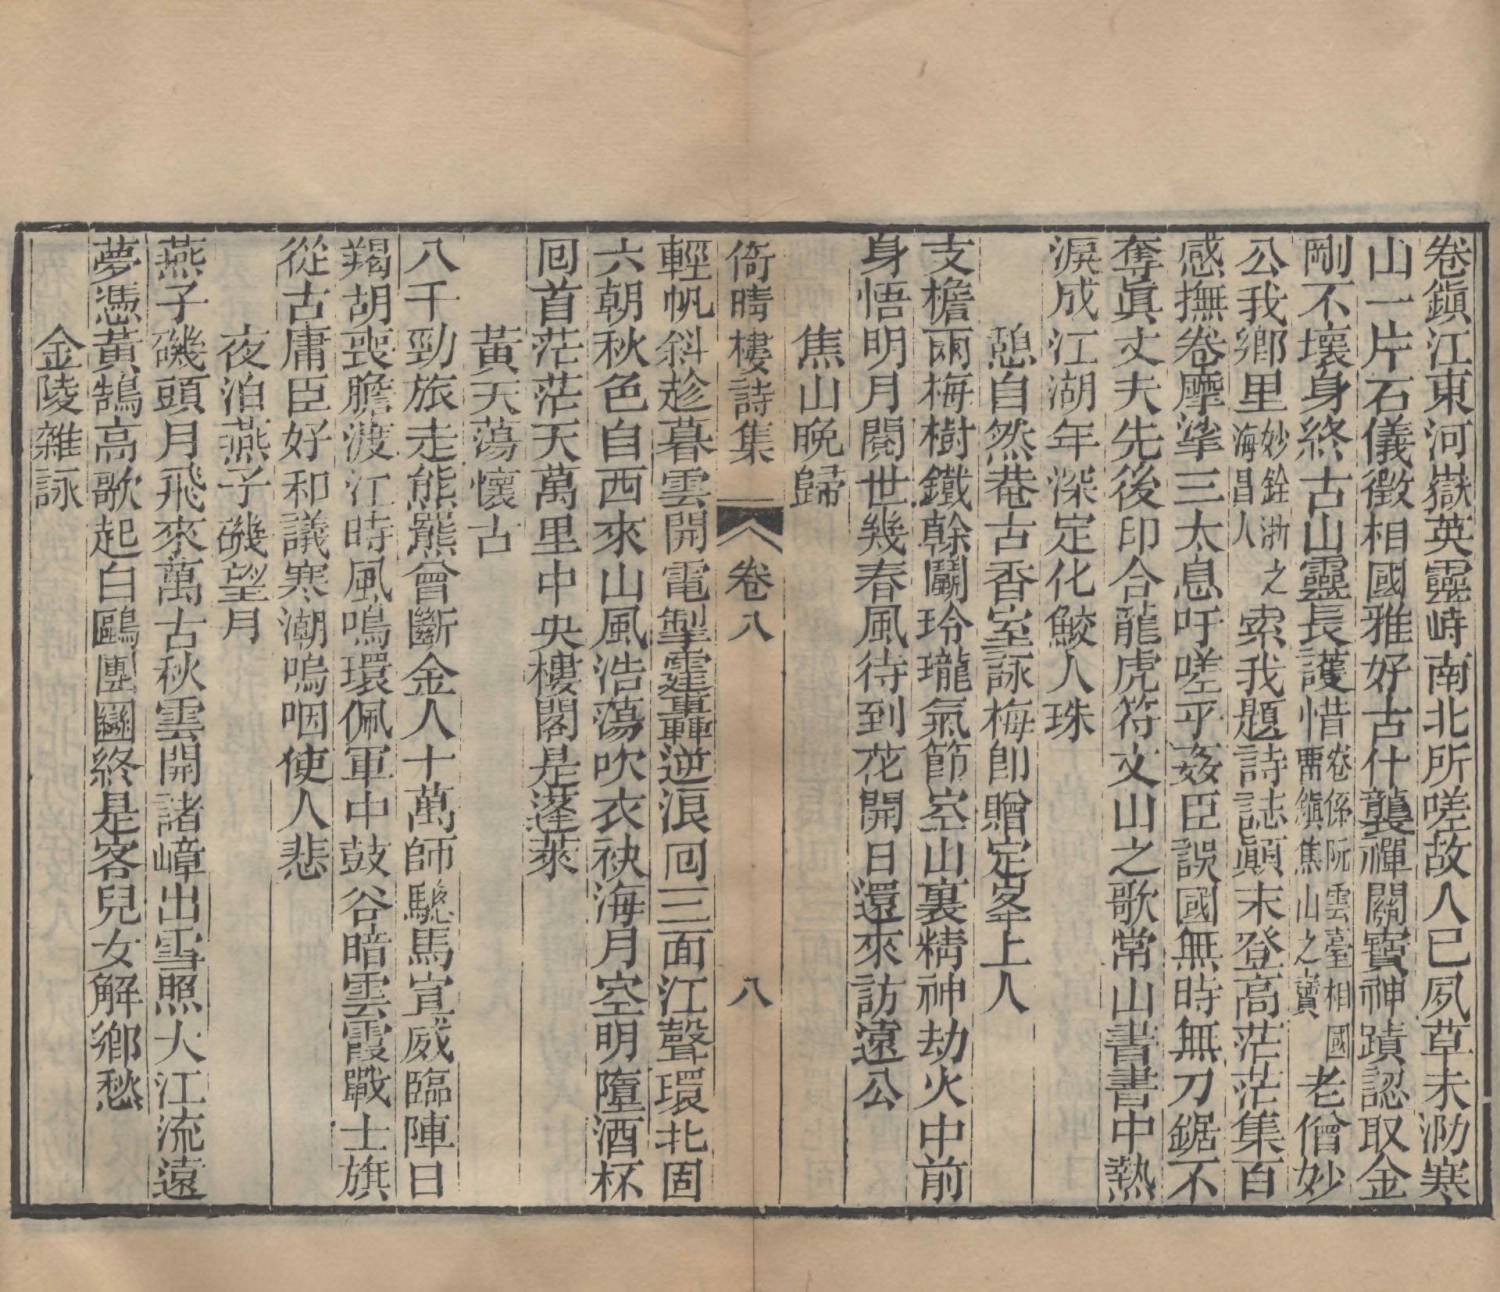 卷鎭江東河嶽英靈峙南北所嗟故人已夙草未泐寒
山一片石儀徵相國雅好古什襲禪關寶神蹟認取金
剛不壞身終古山靈長護惜卷係阮雲臺相國畱鎭焦山之寶老僧妙
公我鄉里妙銓浙之海昌人索我題詩誌顚末登高茫茫集百
感撫卷摩挲三太息吁嗟乎姦臣誤國無時無刀鋸不
奪眞丈夫先後印合龍虎符文山之歌常山書書中熱
淚成江湖年深定化鮫人珠
憩自然菴古香室詠梅卽贈定峯上人
支檐兩梅樹鐵幹鬭玲瓏氣節空山裏精神劫火中前
身悟明月閱世幾春風待到花開日還來訪遠公
焦山晩歸
倚晴樓詩集 卷八 八
輕帆斜趁暮雲開電掣霆轟逆浪回三面江聲環北固
六朝秋色自西來山風浩蕩吹衣袂海月空明墮酒杯
回首茫茫天萬里中央樓閣是蓬萊
黃天蕩懷古
八千勁旅走熊羆曾斷金人十萬師驄馬宣威臨陣日
羯胡喪膽渡江時風鳴環佩軍中鼓谷暗雲霞戰士旗
從古庸臣好和議寒潮嗚咽使人悲
夜泊燕子磯望月
燕子磯頭月飛來萬古秋雲開諸嶂出雪照大江流遠
夢憑黃鵠高歌起白鷗團圞終是客兒女解鄉愁
金陵雜詠